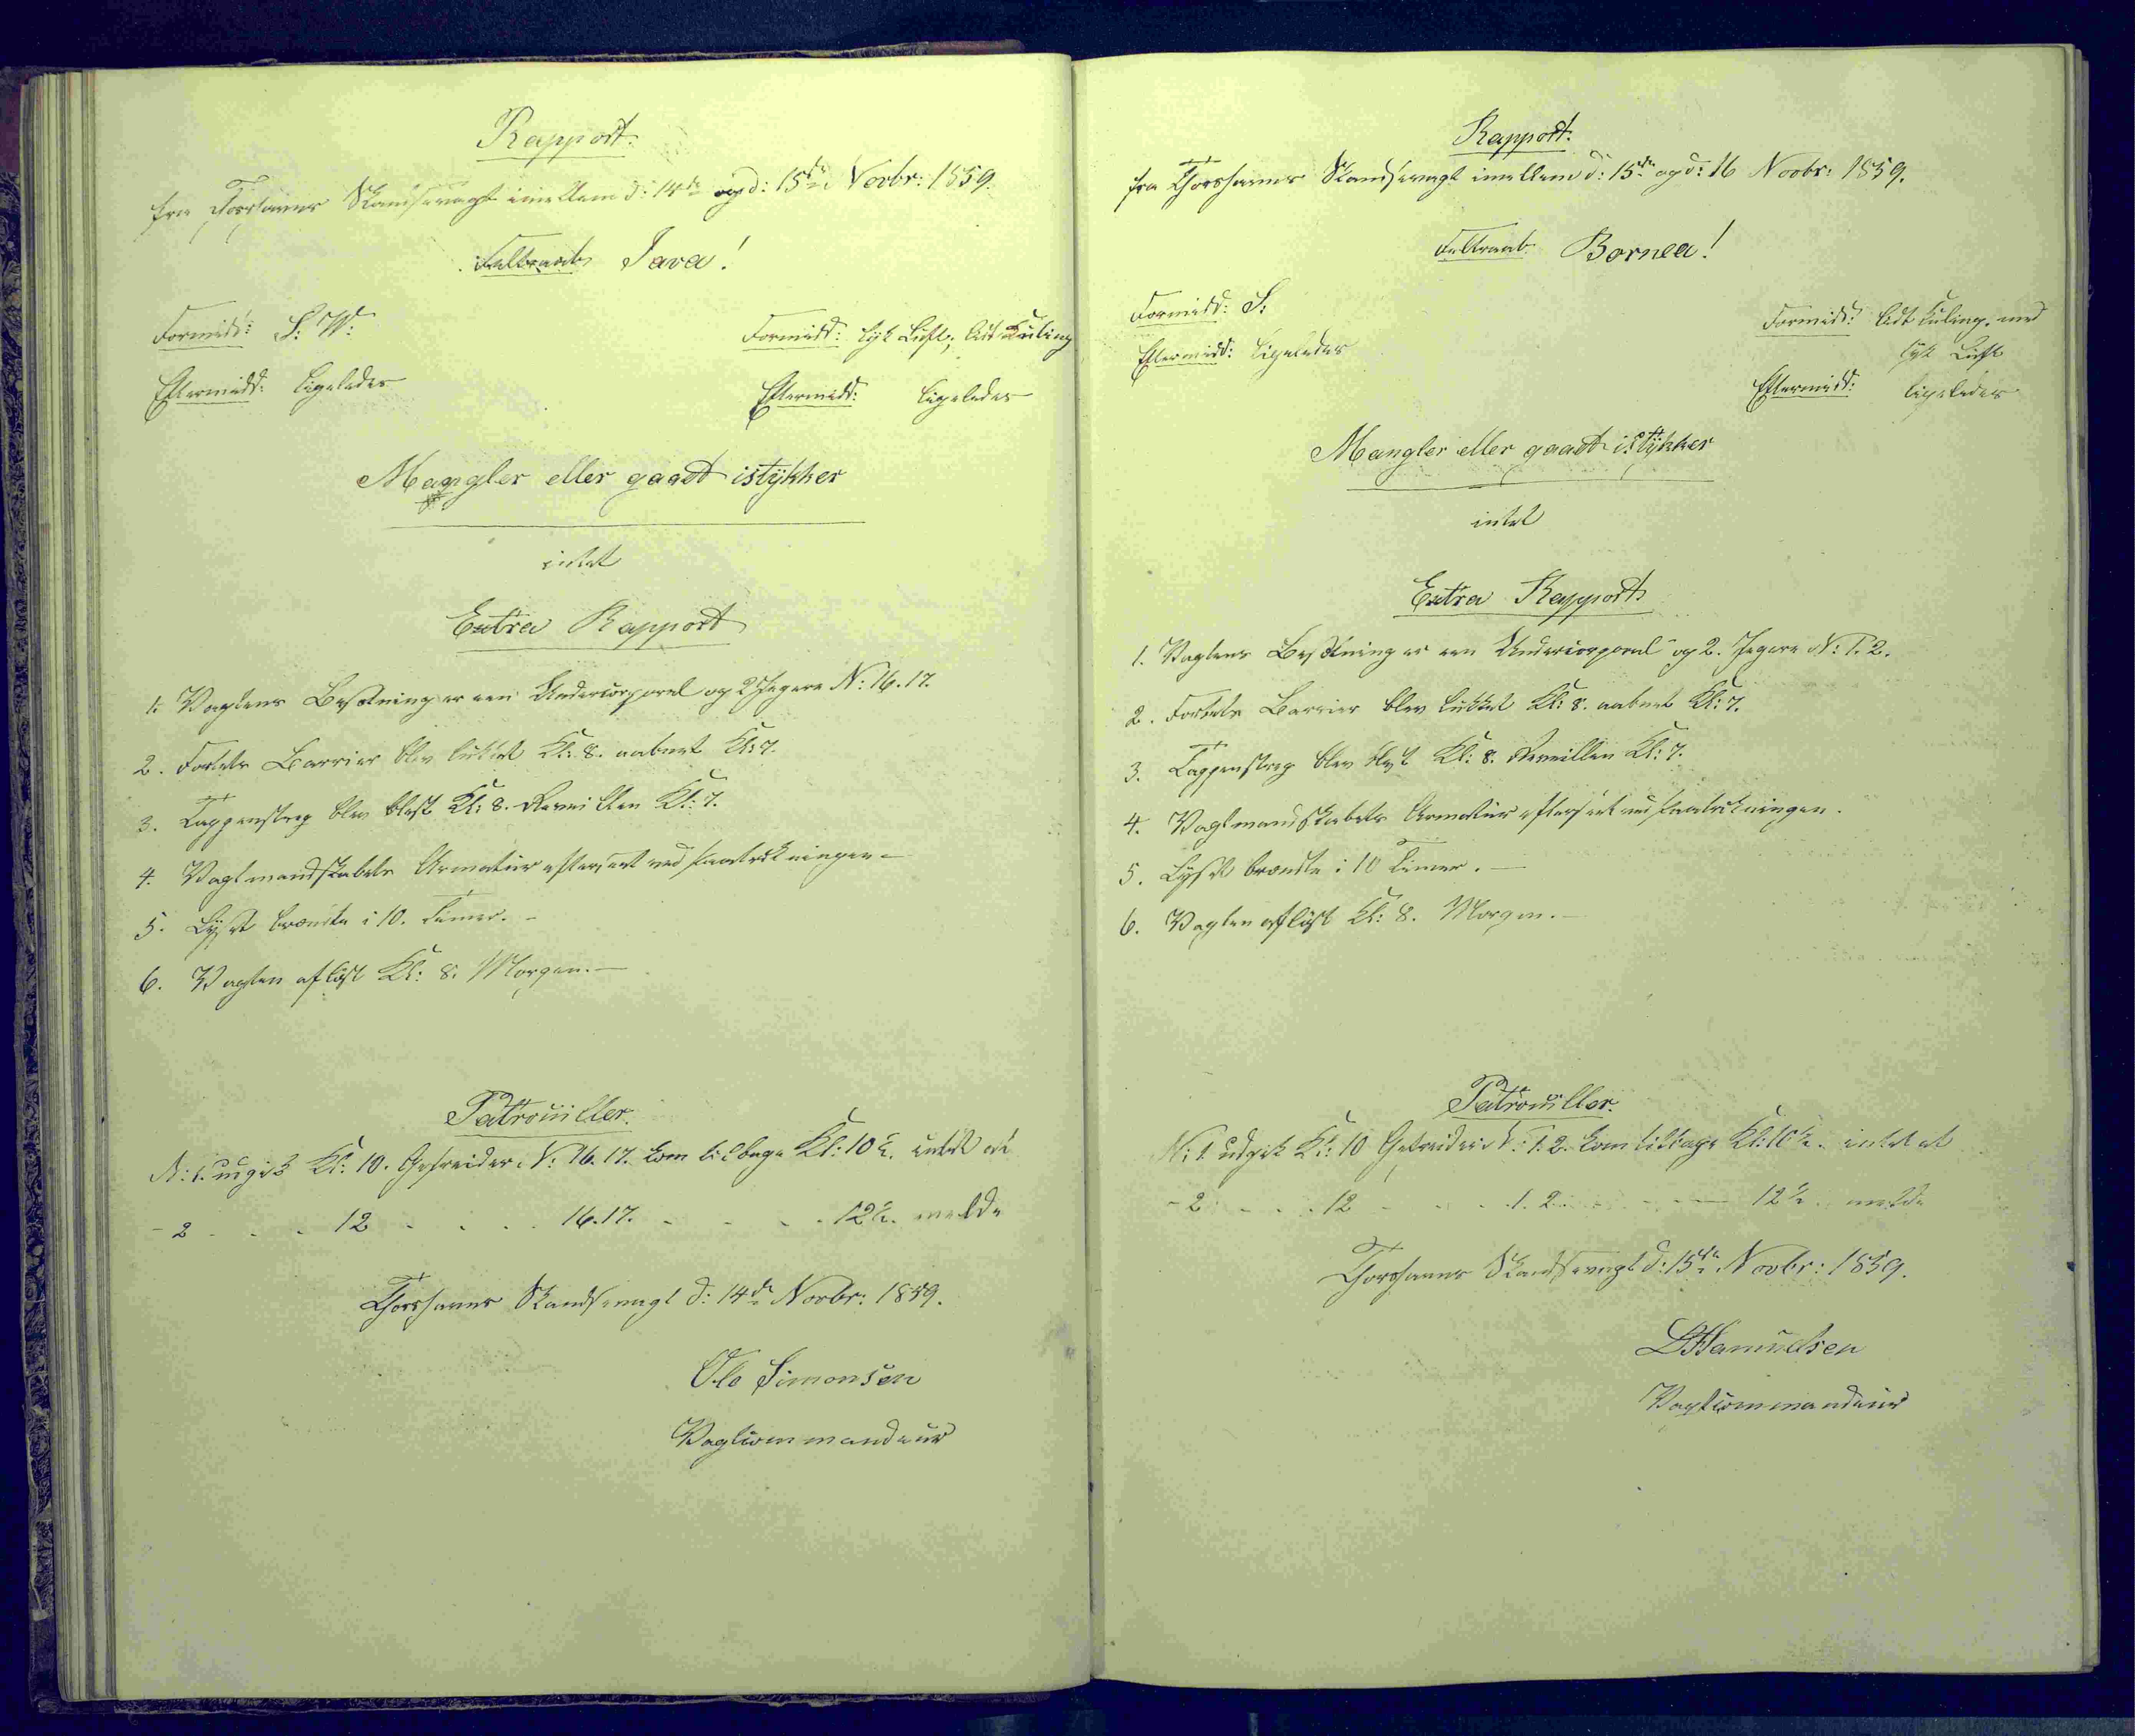 Rapport.
fra Thorshavns Skandsevagt imellem d: 14de og d: 15de Novbr: 1859.
Feltraab Java!
Formidd: S: W:
Formidd: tyk Luft, lidt Kuling
Eftermidd: ligeledes
Eftermidd: ligeledes
Mangler eller gaaet istÿkker
intet
Extra Rapport
1. Vagtens Besætning er een Undercorporal og 2 Jægere N: 16. 17.
2. Fortets Barrier blev lukket Kl: 8. aabnet Kl: 7.
3. Tappenstreg blev blæst Kl: 8. Reveillen Kl: 7.
4. Vagtmandskabets Armatur efterseet ved Paatrækningen –
5. Lyset brændte i 10. Timer. –
6. Vagten afløst Kl: 8. Morgen. –
Patrouiller.
N: 1. udgik Kl: 10. Gefreider. N: 16. 17. kom tilbage Kl: 10½. intet at
- 2 . . . 12 . . . . 16. 17. . . . . 12½. melde
Thorshavns Skandsevagt d: 14de Novbr: 1859.
Ole Simonsen
Vagtcommandeur
Rapport.
fra Thorshavns Skandsevagt imellem d: 15de og d: 16 Novbr: 1859.
Feltraab. Bornea!
Formidd: S:
Formidd: lidt Kuling, med
tyk Luft
Eftermidd: ligeledes
Eftermidd: ligeledes
Mangler eller gaaet istÿkker
intet
Extra Rapport
1. Vagtens Besætning er een Undercorporal og 2. Jægere N: 1. 2.
2. Fortets Barrier blev lukket Kl: 8. aabnet Kl: 7.
3. Tappenstreg blev blæst Kl: 8. Reveillen Kl: 7.
4. Vagtmandskabets Armatur efterseet ved Paatrækningen.
5. Lyset brændte i 10 Timer. –
6. Vagten afløst Kl: 8. Morgen. –
Patrouiller.
N: 1 udgik Kl: 10 Gefreider N: 1. 2. kom tilbage Kl: 10½. intet at
- 2 . . . 12 . . . . 1. 2. . . . 12½. melde
Thorshavns Skandsevagt d: 15de Novbr: 1859.
Samuelsen
Vagtcommandeur